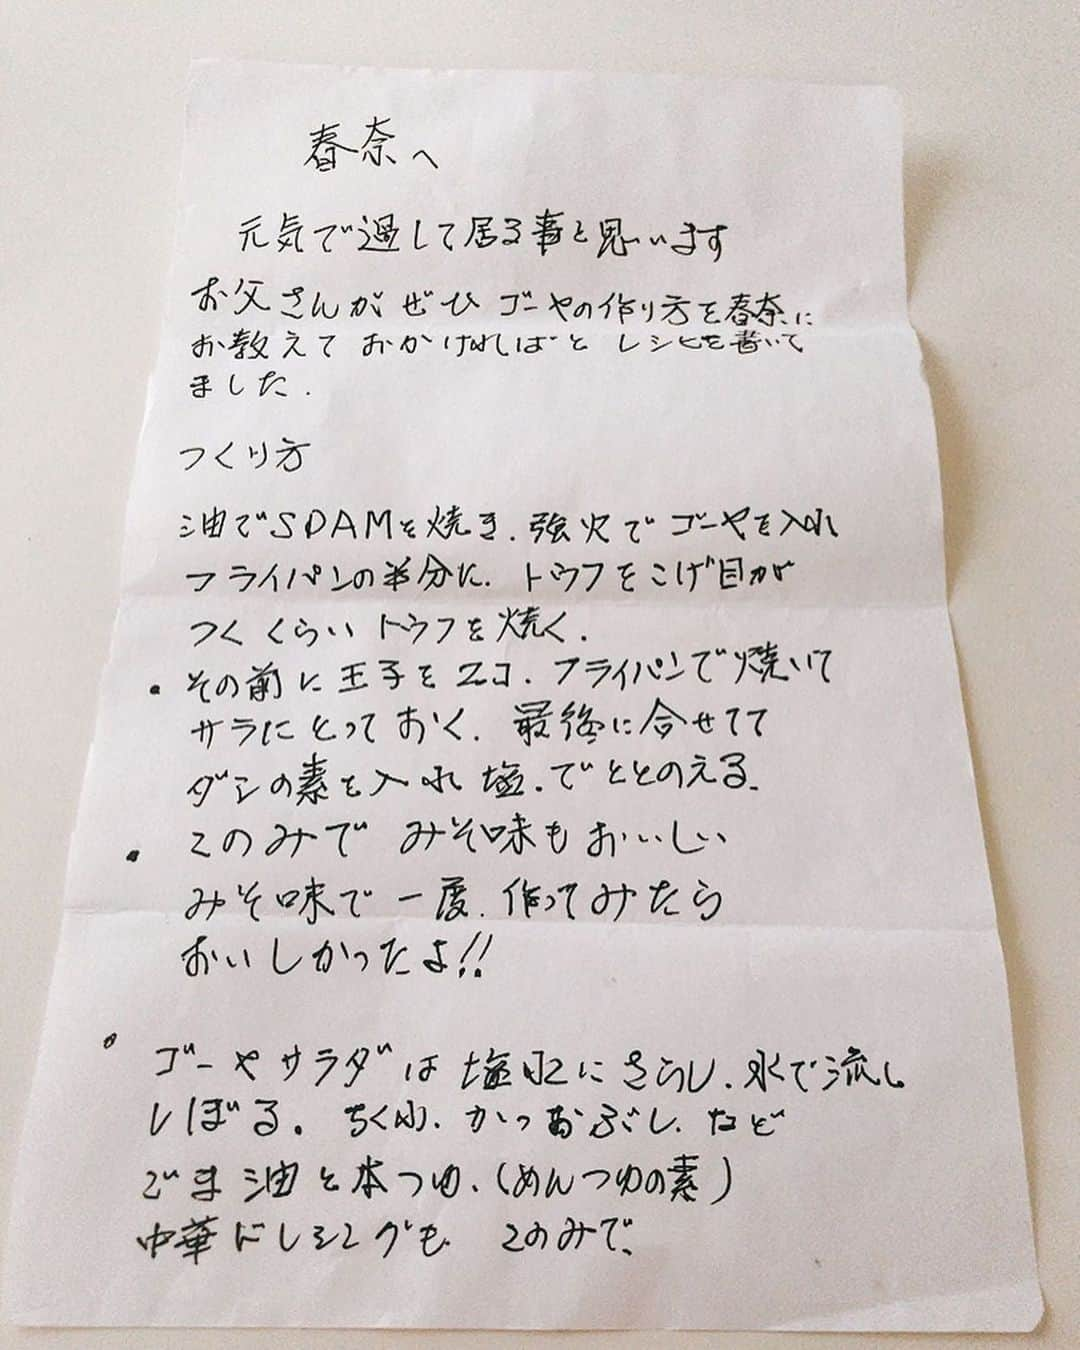 春奈へ
元気で過して居る事と思います
お父さんがぜひゴーヤの作り方を春奈に
お教えておかければとレシピを書いて
ました.
つくり方
油でSPAMを焼き.強火でゴーヤを入れ
フライパンの半分に.トウフをこげ目が
つくくらいトウフを焼く.
・その前に玉子を2コ.フライパンで焼いて
サラにとっておく.最後に合せてて
ダシの素を入れ塩.でととのえる.
・このみでみそ味もおいしい
みそ味で一度.作ってみたら
おいしかったよ!!
。ゴーヤサラダは塩水にさらし.水で流し
しぼる。ちくわ.かつおぶし.など
ごま油と本つゆ.(めんつゆの素)
中華ドレシングも このみで、